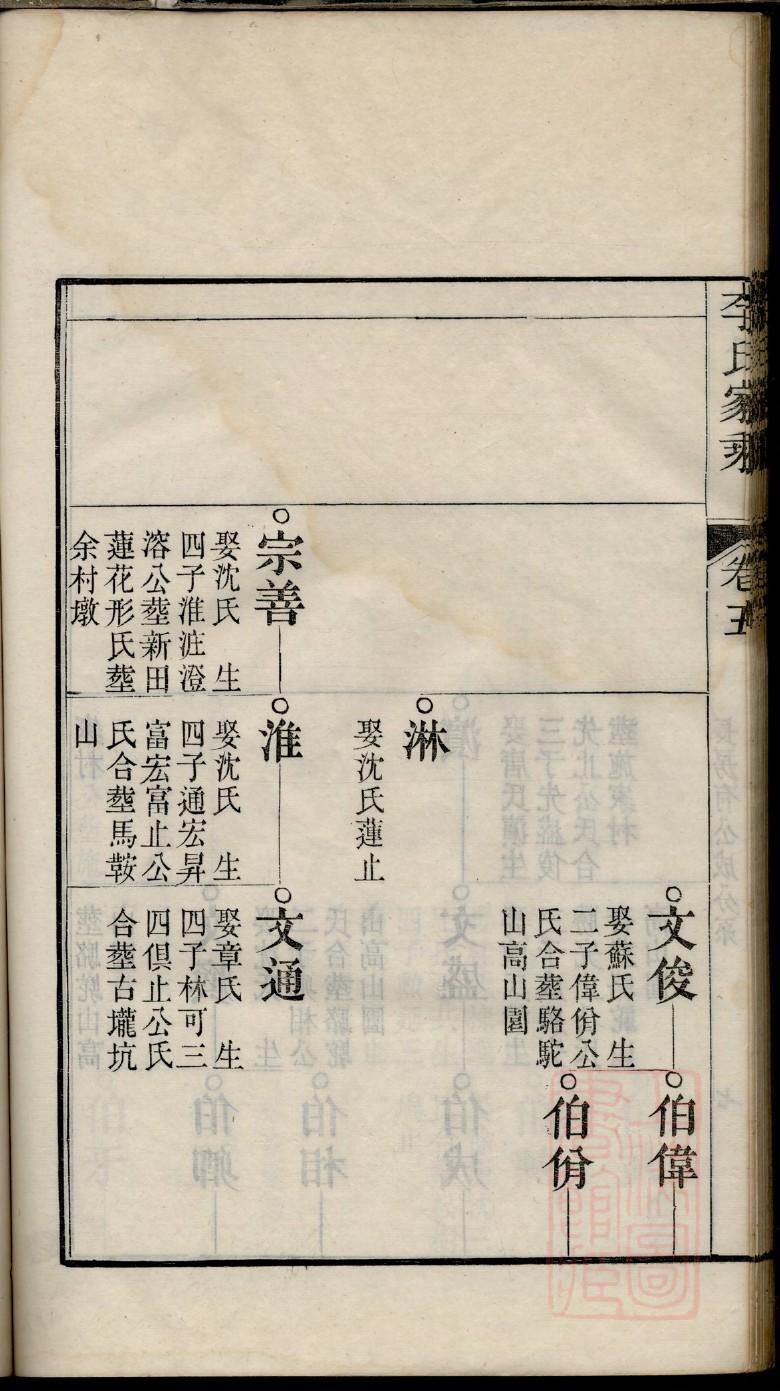 李氏家乘
卷五
文俊
娶蘇氏 生
二子偉佾公
氏合塟駱駝
山高山園
伯偉
伯佾
淋
娶沈氏蓮止
宗善
娶沈氏 生
四子淮泩澄
溶公塟新田
蓮花形氏塟
余村墩
淮
娶沈氏 生
四子通宏昇
富宏富止公
氏合塟馬鞍
山
文通
娶章氏 生
四子林可三
四俱止公氏
合塟古壠坑